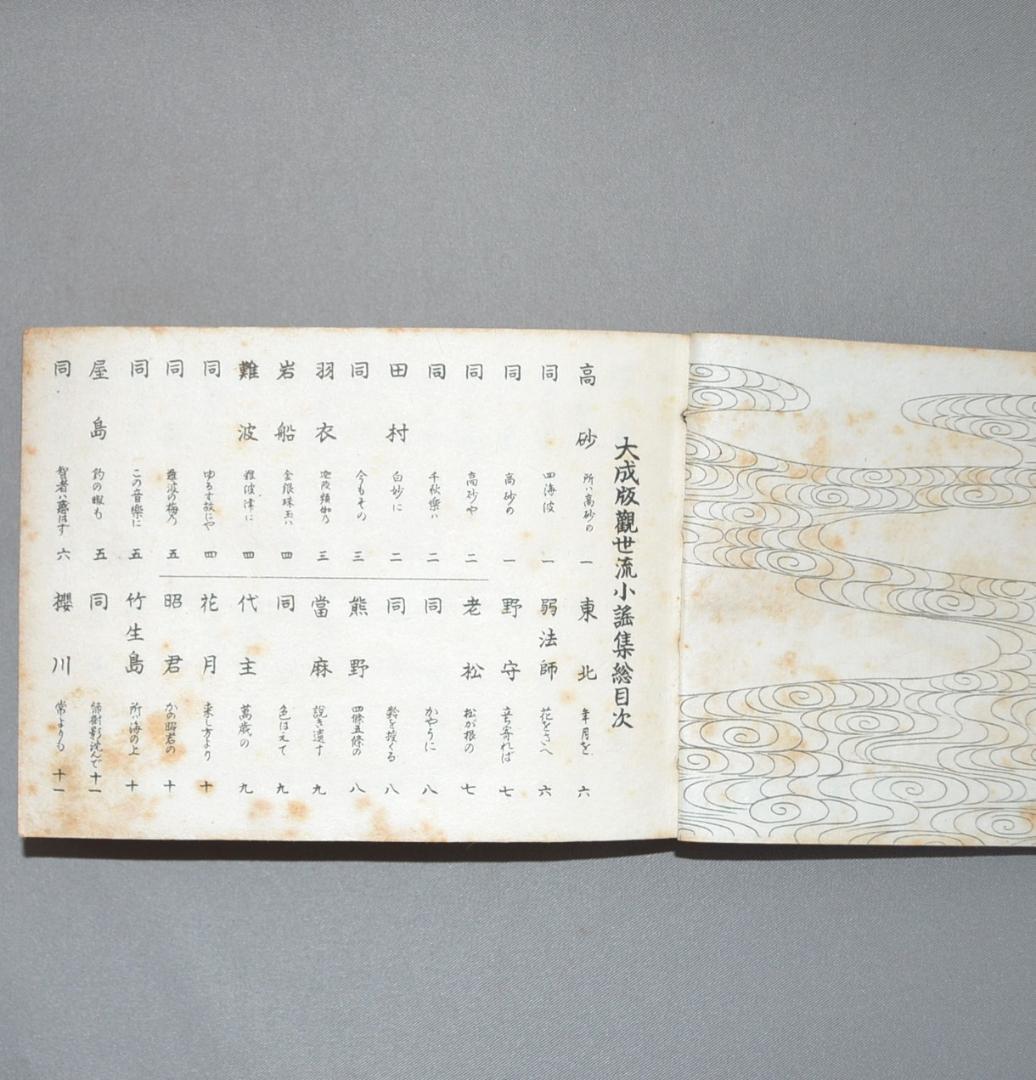 大成版觀世流小謠集総目次
高砂 所ハ高砂の 一
同 四海波 一
同 高砂の 一
同 高砂や 二
同 千秋樂ハ 二
田村 白妙に 二
同 今もその 三
羽衣 迦陵頻伽の 三
岩船 金銀珠玉ハ 四
難波 難波津に 四
同 ゆるす故にや 四
同 難波の梅乃 五
同 この音樂に 五
屋島 釣の暇も 五
同 智者ハ惑はず 六
東北 年月を 六
弱法師 花をさへ 六
野守 立ち寄れば 七
老松 松が根の 七
同 かやうに 八
同 齢を授くる 八
熊野 四條五條の 八
當麻 說き遺す 九
同 色はえて 九
代主 萬歳の 九
花月 来し方より 十
昭君 かの昭君の 十
竹生島 所ハ海の上 十
同 緑樹影沈んで 十一
櫻川 常よりも 十一